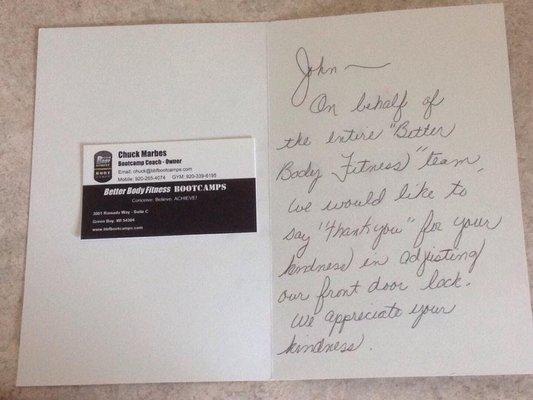 Chuck Marbes
Bootcamp Coach - Owner
Email: chuck@bbfbootcamps.com
Mobile: 920-265-4074 GYM: 920-339-6195
Better Body Fitness BOOTCAMPS
Conceive. Believe. ACHIEVE!
3001 Ramada Way - Suite C
Green Bay, WI 54304
www.bbfbootcamps.com
John —
On behalf of
the entire "Better
Body Fitness" team,
we would like to
say "thank you" for your
kindness in adjusting
our front door lock.
We appreciate your
kindness.